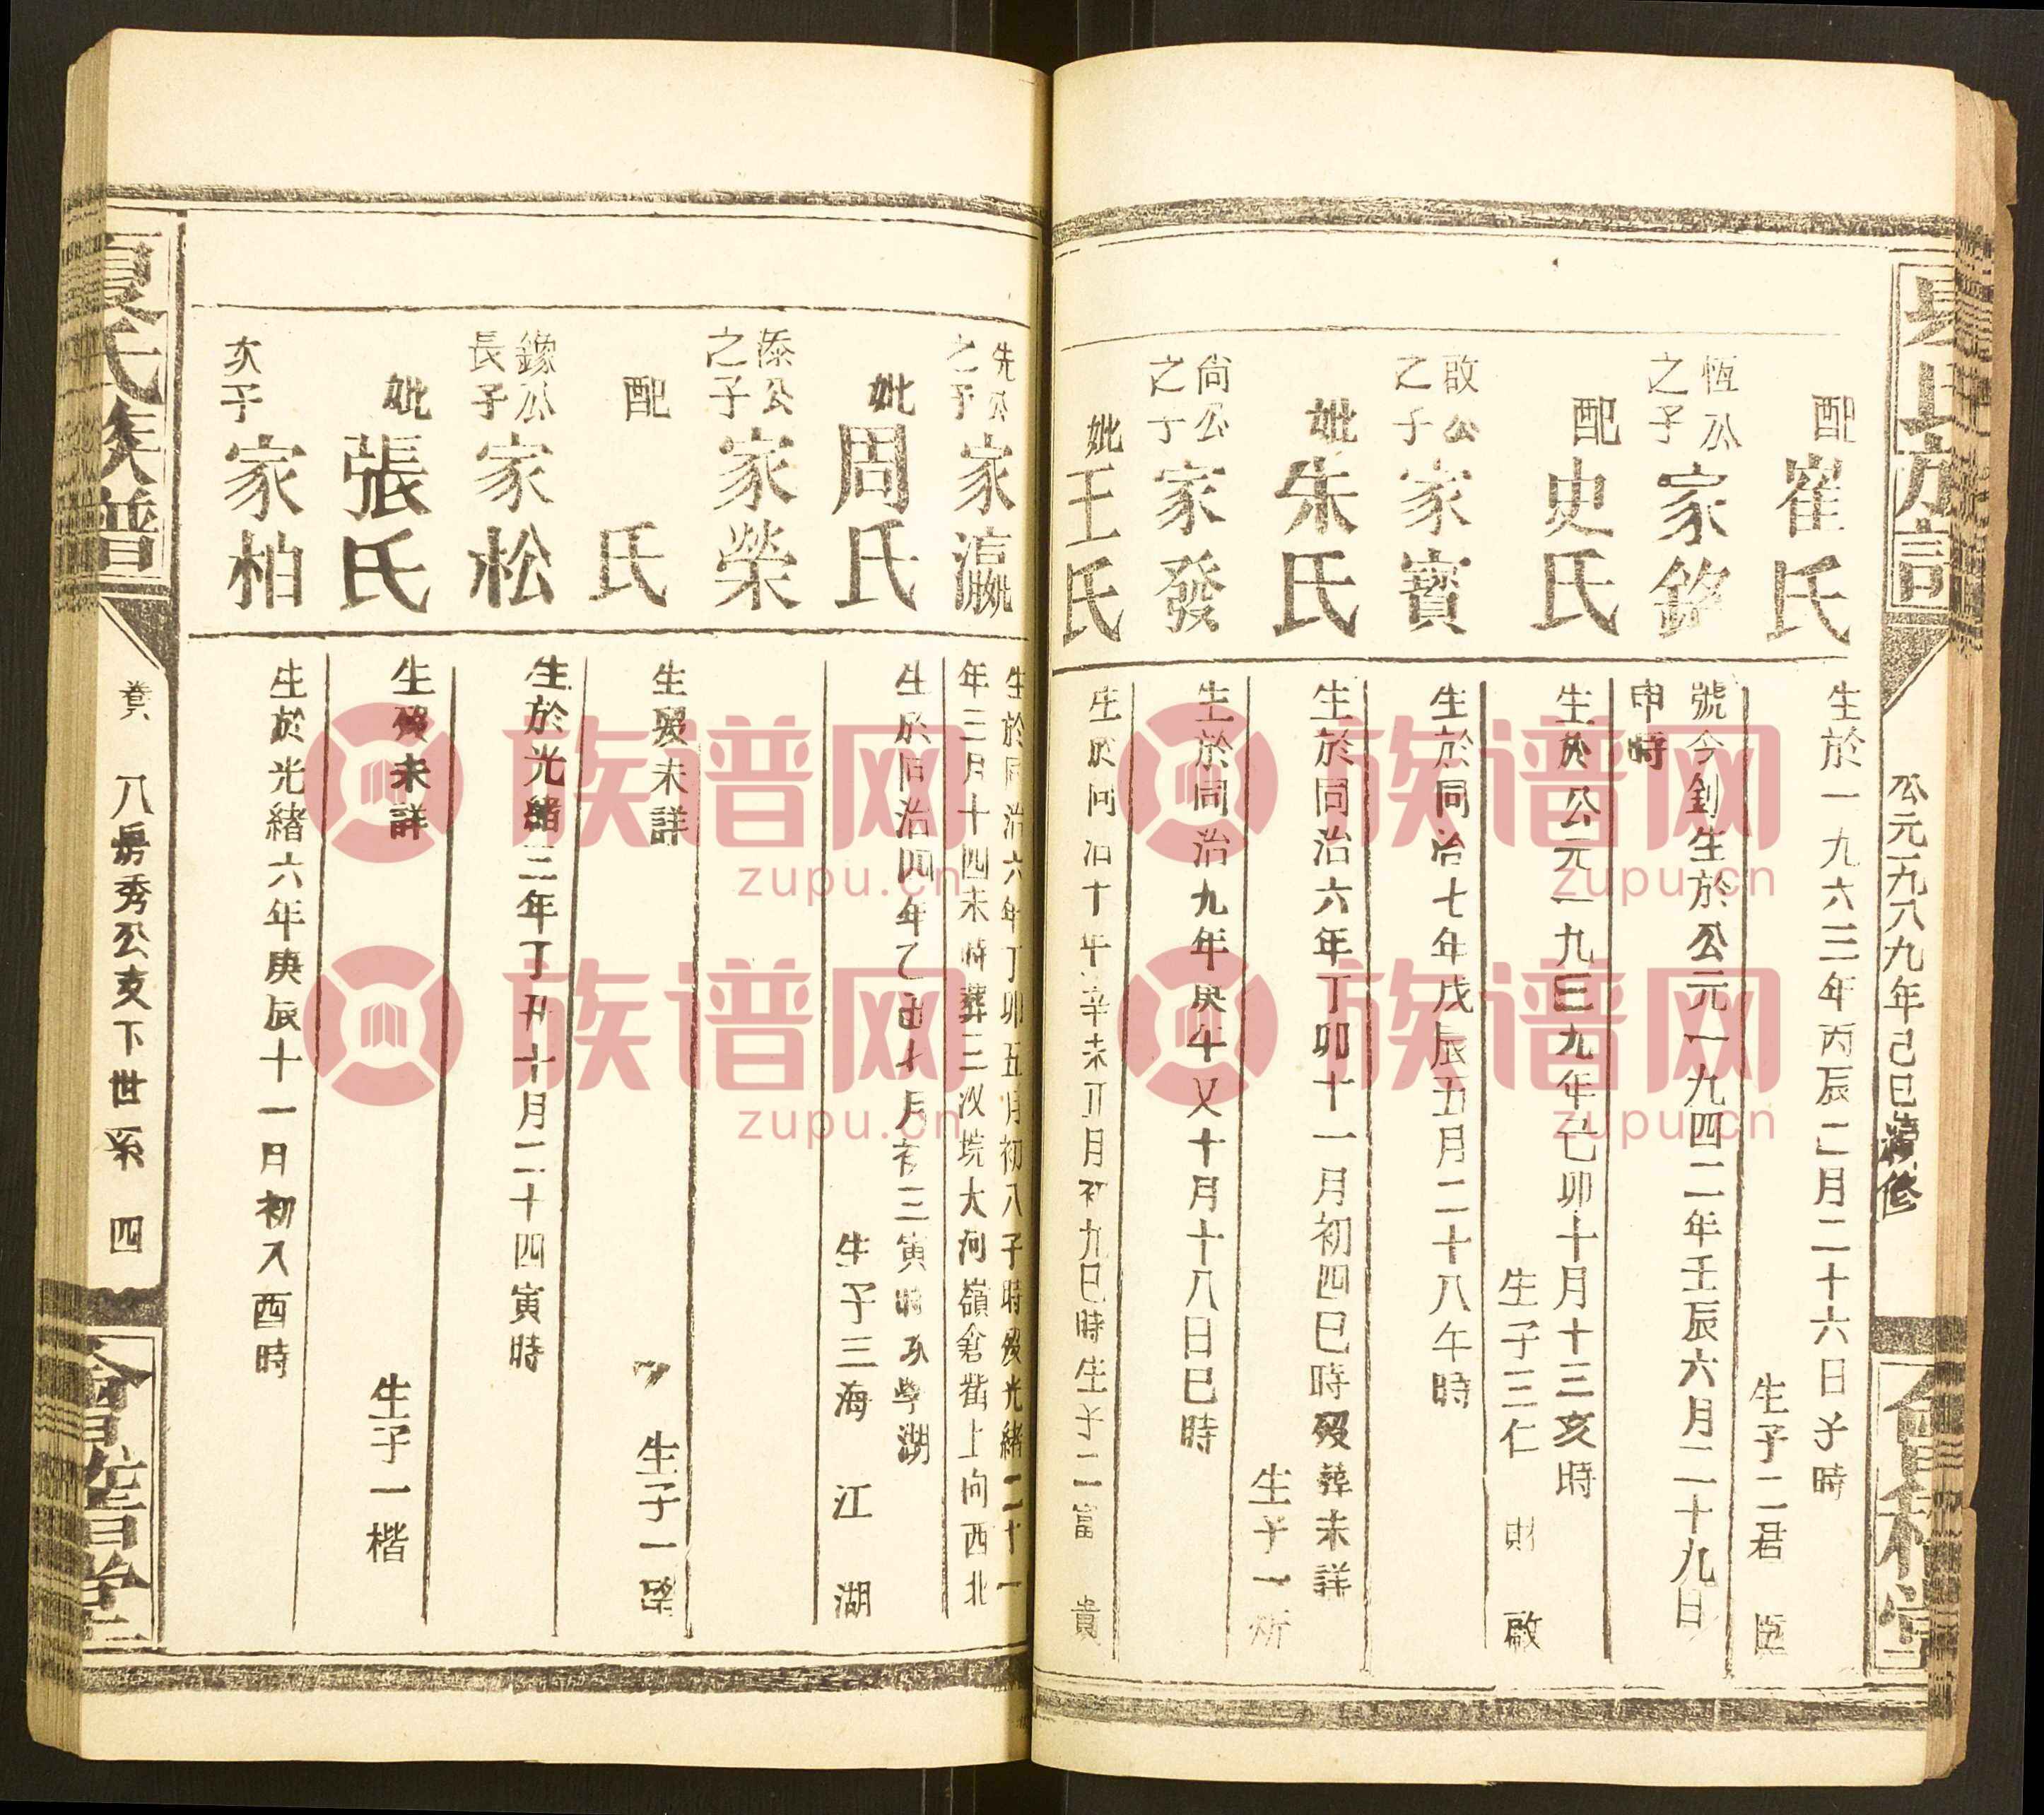 公元一九八九年己巳續修
配
崔氏
生於一九六三年丙辰二月二十六日子時
生子二君 臣
恆公
之子
家銘
號今釗生於公元一九四二年壬辰六月二十九日
申時
配
史氏
生於公元一九三九年己卯十月十三亥時
生子三仁 財 啟
啟公
之子
家寶
生於同治七年戊辰五月二十八午時
妣
朱氏
生於同治六年丁卯十一月初四巳時歿葬未詳
生子一
尙公
之子
家發
生於同治九年庚午又十月十八日巳時
妣
王氏
生於同治十年辛未正月初九巳時生子二富 貴
先公
之子
家瀛
生於同治六年丁卯五月初八子時歿光緒二十一
年三月十四未時葬三汊垸大河嶺倉
上向西北
妣
周氏
生於同治四年乙丑七月初三寅時歿學湖
生子三海 江 湖
添公
之子
家榮
配
氏
生歿未詳
生子一
鎵公
長子
家松
生於光緒三年丁丑十月二十四寅時
妣
張氏
生歿未詳
生子一楷
次子
家柏
生於光緒六年庚辰十一月初八酉時
夏氏族譜
卷六
八房秀公支下世系 四
族谱网
zupu.cn
族谱网
zupu.cn
族谱网
zupu.cn
族谱网
zupu.cn